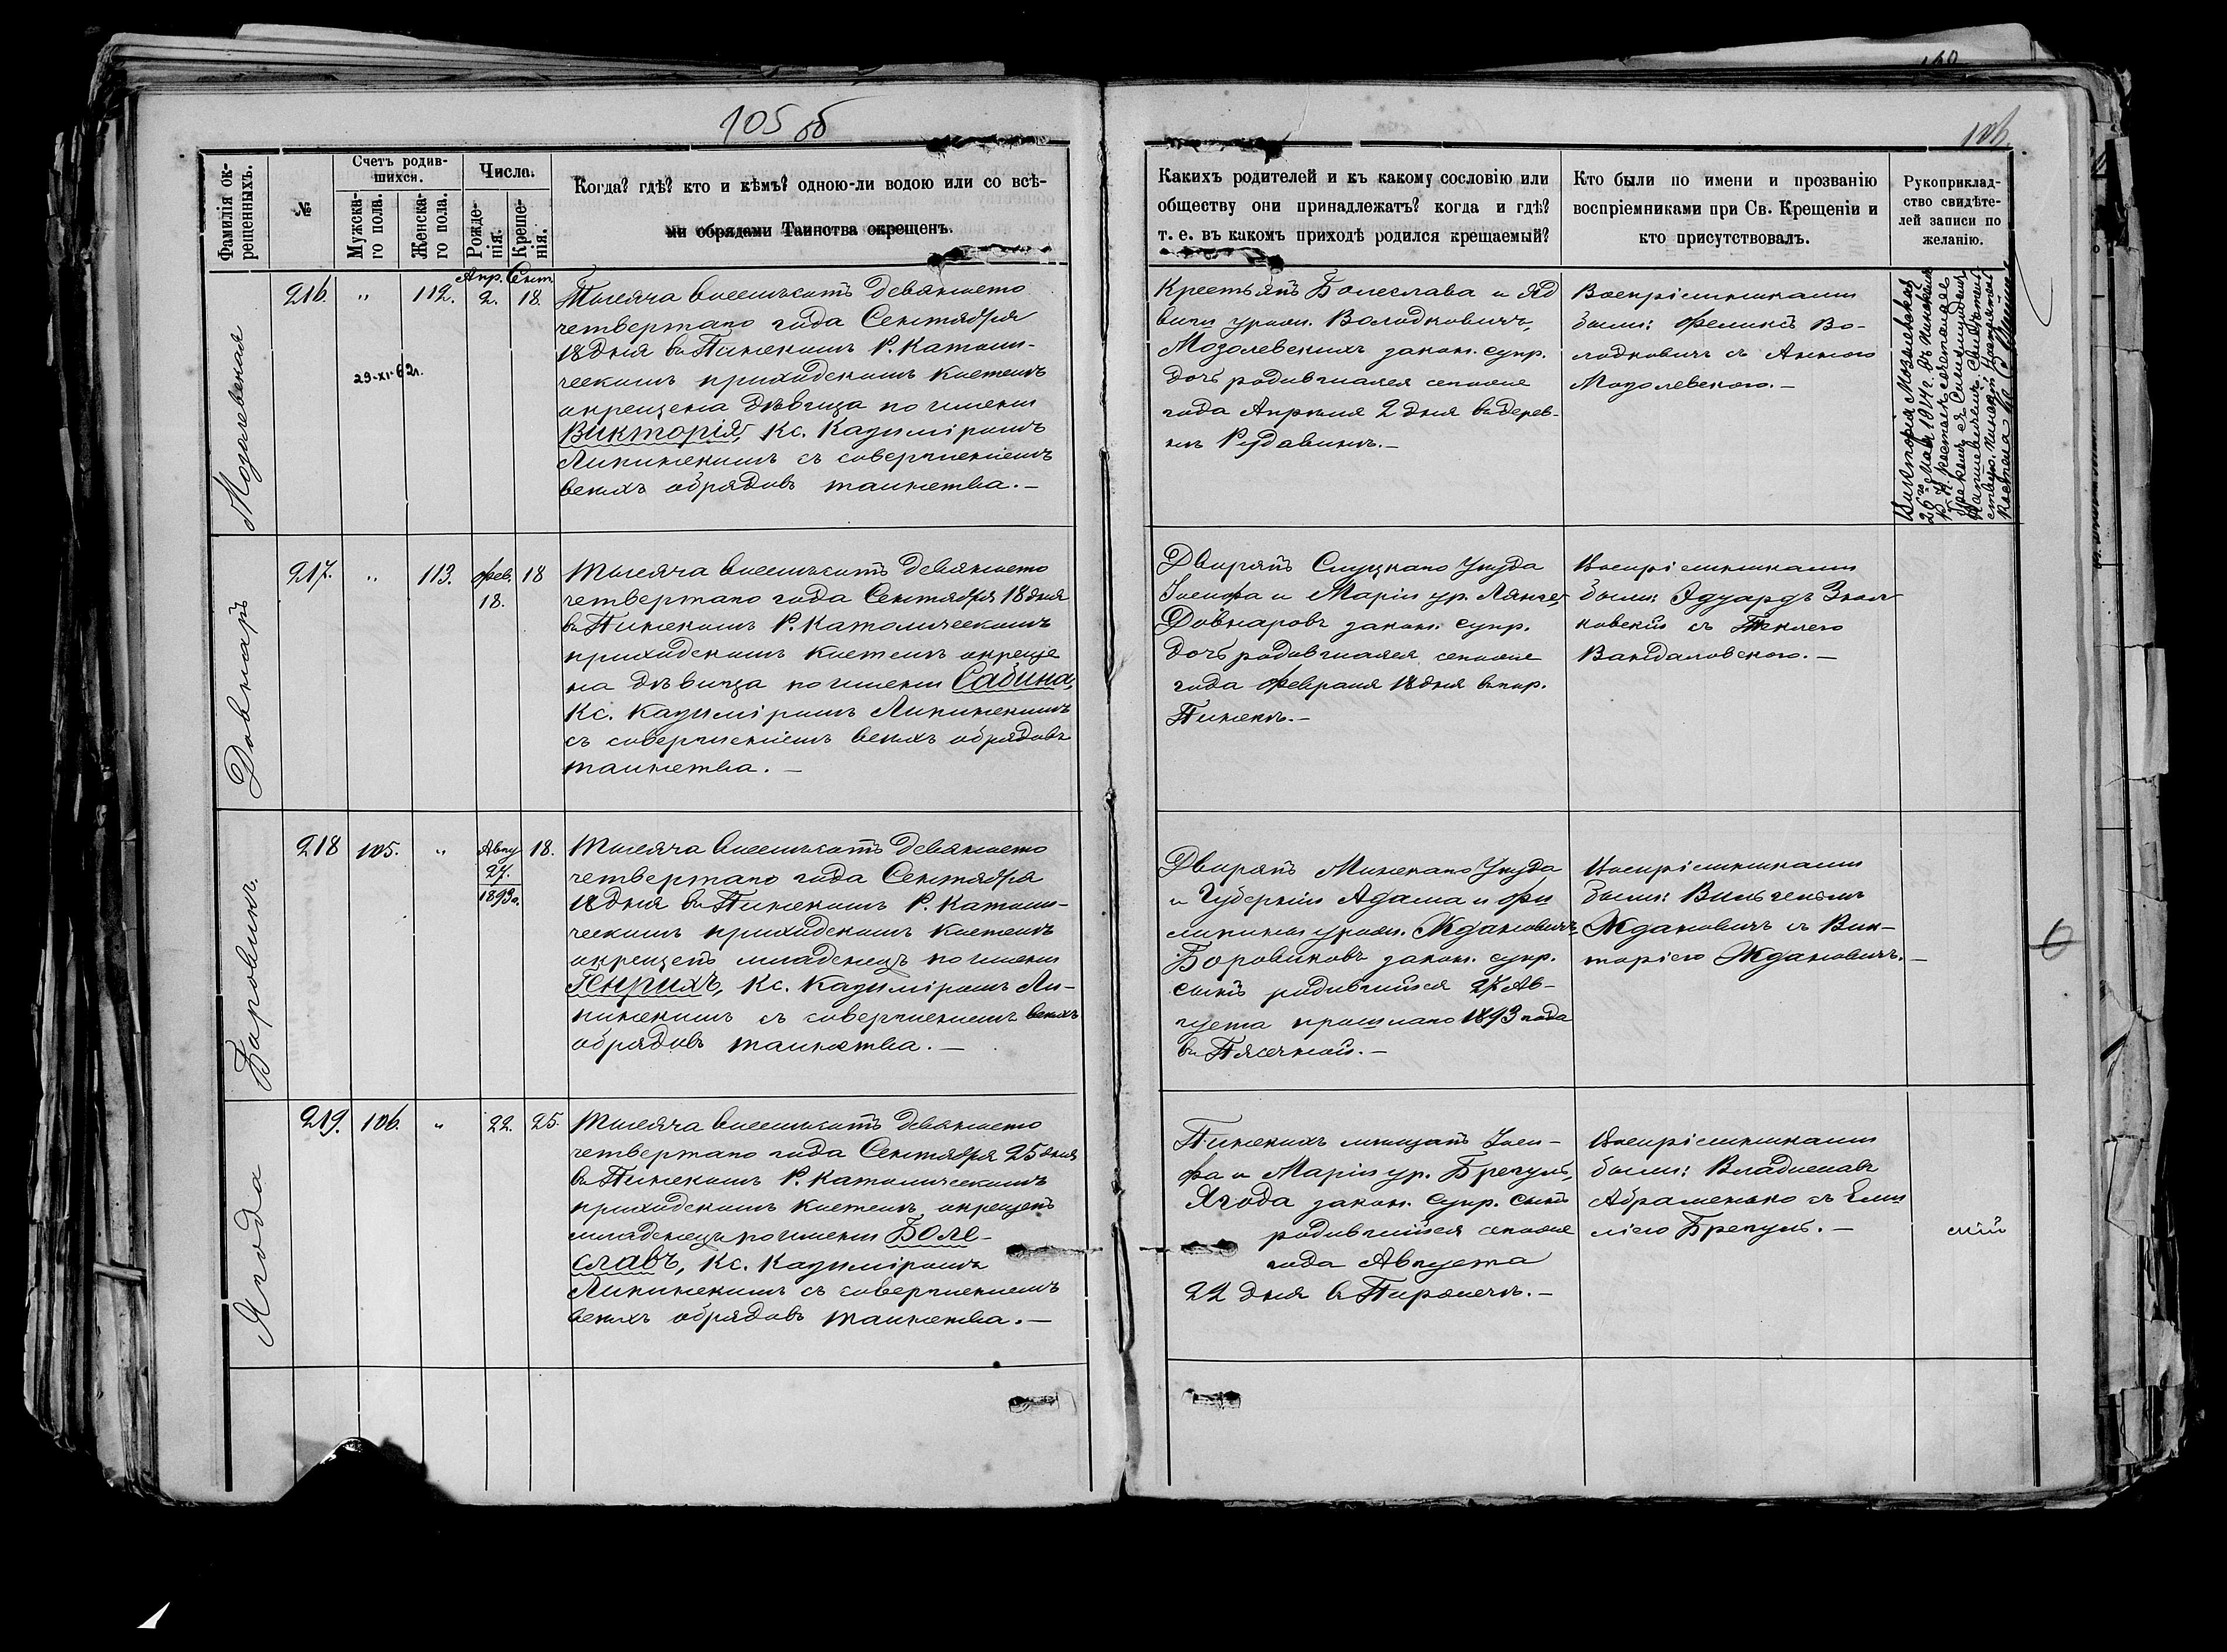 105 об
106.
Фамилія ок-
рещенныхъ.
№
Счетъ родив-
шихся.
Мужска-
го пола.
Женска-
го пола.
Числа.
Рожде-
нія.
Креще-
нія.
Когда? гдѣ? кто и кѣмъ? одною-ли водою или со всѣ-
ми обрядами Таинства окрещенъ.
Какихъ родителей и къ какому сословію или
обществу они принадлежатъ? когда и гдѣ?
т. е. въ какомъ приходѣ родился крещаемый?
Кто были по имени и прозванію
воспріемниками при Св. Крещеніи и
кто присутствовалъ.
Рукоприклад-
ство свидѣте-
лей записи по
желанію.
Мозолевская
216. " 112. Апр. 2. Сент. 18.
29-XI-62г.
Тысяча восемьсотъ девяносто
четвертаго года Сентября
18 дня въ Пинскомъ Р. Католи-
ческомъ приходскомъ костелѣ
окрещена дѣвица по имени
Викторія, Кс. Казиміромъ
Липинскимъ съ совершеніемъ
всѣхъ обрядовъ таинства. —
Крестьянъ Болеслава и Яд
виги урож. Володковичъ,
Мозолевскихъ закон. супр.
дочь родившаяся сегоже
года Апрѣля 2 дня въ дерев-
нѣ Рудавинѣ. —
Воспріемниками
были: Феликсъ Во-
лодковичъ съ Анною
Мозолевскою. —
Викторія Мозолевская
Довнаръ
217. " 113. Фев. 18. 18
Тысяча восемьсотъ девяносто
четвертаго года Сентября 18 дня
въ Пинскомъ Р. Католическомъ
приходскомъ костелѣ окреще
на дѣвица по имени Сабина,
Кс. Казиміромъ Липинскимъ
съ совершеніемъ всѣхъ обрядовъ
таинства. —
Дворянъ Слуцкаго Уѣзда
Іосифа и Маріи ур.
Довнаровъ закон. супр.
дочь родившаяся сегоже
года Февраля 18 дня въ гор.
Пинскѣ. —
Воспріемниками
были: Эдуардъ
съ Теклею
Вандаловскою. —
Боровикъ.
218 105. " Авгу 27. 1893г. 18.
Тысяча восемьсотъ девяносто
четвертаго года Сентября
18 дня въ Пинскомъ Р. Католи-
ческомъ приходскомъ костелѣ
окрещенъ младенецъ по имени
Генрихъ, Кс. Казиміромъ Ли-
пинскимъ съ совершеніемъ всѣхъ
обрядовъ таинства. —
Дворянъ Минскаго Уѣзда
и Губерніи Адама и Фи
липины урож. Ждановичъ,
Боровиковъ закон. супр.
сынъ родившійся 27 Ав-
густа прошлаго 1893 года
въ Пясечной. —
Воспріемниками
были: Вильгельмъ
Ждановичъ съ Вик-
торіею Ждановичъ. —
Ягода
219. 106. " 22. 25.
Тысяча восемьсотъ девяносто
четвертаго года Сентября 25 дня
въ Пинскомъ Р. Католическомъ
приходскомъ костелѣ окрещенъ
младенецъ по имени Боле-
славъ, Кс. Казиміромъ
Липинскимъ съ совершеніемъ
всѣхъ обрядовъ таинства. —
Пинскихъ мѣщанъ Іоси-
фа и Маріи ур. Брегуль,
Ягода закон. супр. сынъ
родившійся сегоже
года Августа
22 дня въ
Воспріемниками
были: Владиславъ
Абраменько съ Еми
ліею Брегуль. —